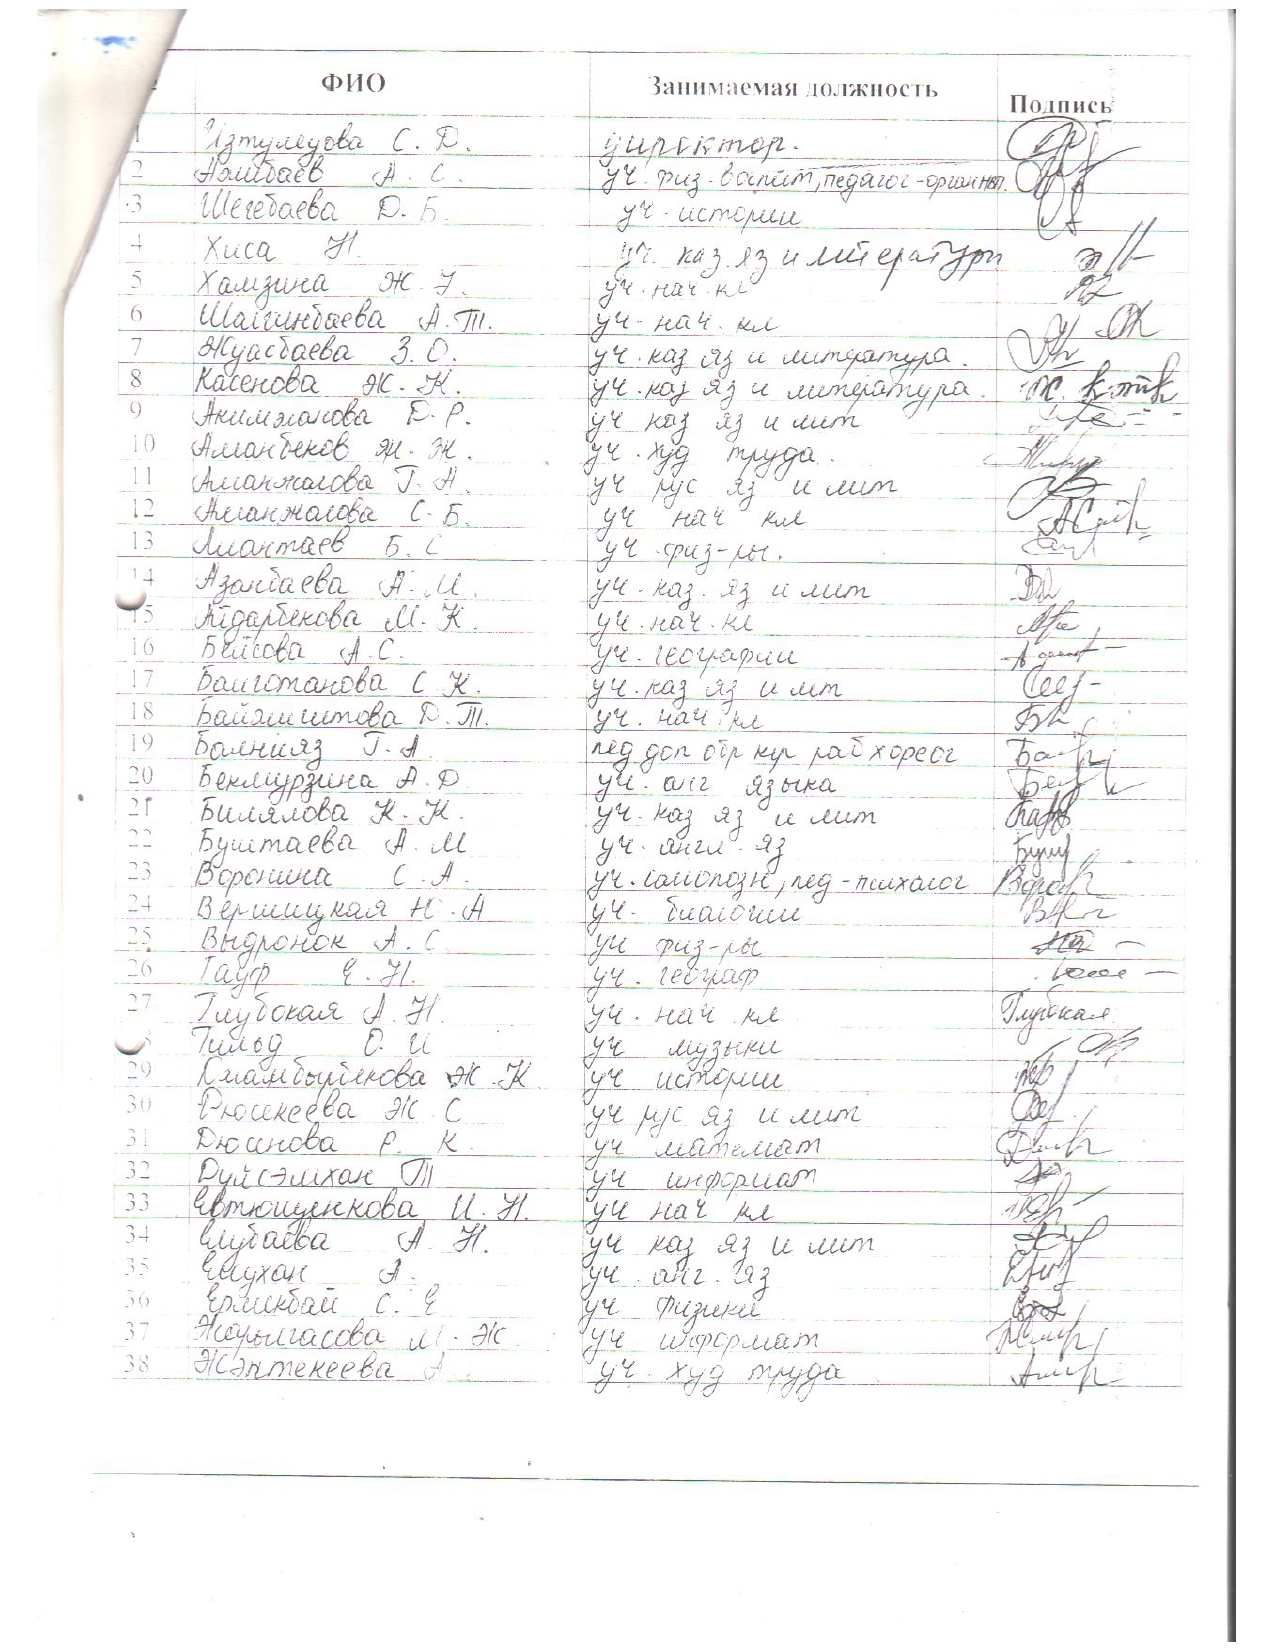 ФИО Занимаемая должность Подпись
1 Изтулеуова С. Д. директор.
2 А С. уч. физ. воспит, педагог-организ.
3 Шегебаева Д. Б. уч. истории
4 Хиса Н. уч. каз. яз и литературы
5 Хамзина Ж. У. уч. нач. кл
6 Шашинбаева А. Т. уч. нач. кл
7 Жуасбаева З. О. уч. каз яз и литература.
8 Касенова Ж. К. уч. каз яз и литература.
9 Акимжанова Д. Р. уч каз яз и лит
10 Аманбеков Ж. Ж. уч. худ труда.
11 Аманжолова Г. А. уч рус яз и лит
12 Аманжолова С. Б. уч нач кл
13 Амантаев Б. С уч. физ-ры.
14 Азанбаева А. М. уч. каз. яз и лит
15 Айдарбекова М. К. уч. нач. кл
16 Бейсова А. С. уч. географии
17 С К. уч. каз яз и лит
18 Д. Т. уч. нач. кл
19 Балнияз Г. А пед доп обр хореог
20 Бекмурзина А. Д уч. анг языка
21 Билялова К. К. уч. каз яз и лит
22 Буштаева А. М уч. англ. яз
23 Воронина С. А. уч. самопозн, пед-психолог
24 Вершицкая Н. А уч. биологии
25 Выдронок А. С уч физ-ры
26 Гауф Е. Н. уч. географ
27 Глубокая А. Н. уч. нач. кл Глубокая
Гильд О. И уч музыки
29 Ж. К уч истории
30 Дюсекеева Ж С уч рус яз и лит
31 Дюсинова Р. К уч математ
32 Дуйсэмхан Т уч информат
33 Евтющенкова И. Н. уч нач кл
34 Елубаева А Н. уч каз яз и лит
35 Елухан А. уч. анг. яз
36 Ерликбай С. Е уч физики
37 Жарылгасова М. Ж уч информат
38 Жэптекеева А. уч. худ труда